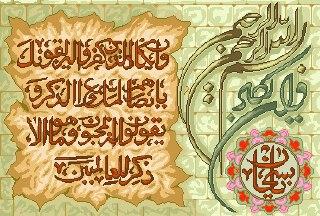 بسم الله الرحمن الرحيم
وإن يكاد
وإن يكاد الذين كفروا ليزلقونك
بأبصارهم لما سمعوا الذكر و
يقولون إنه لمجنون وما هو إلا
ذكر للعالمين